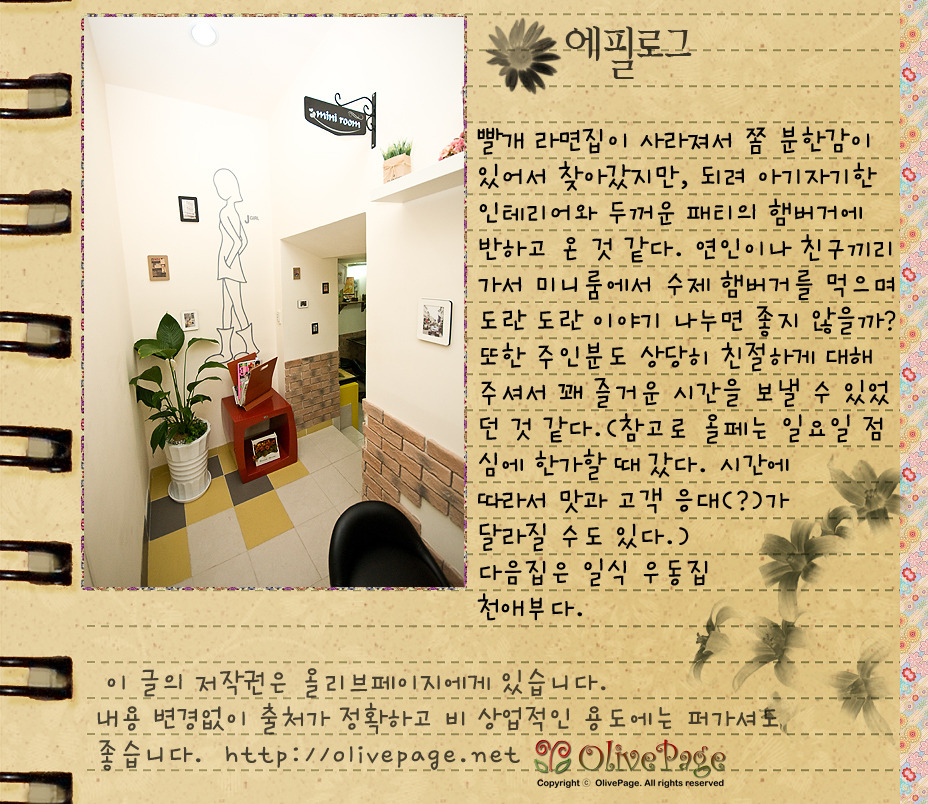 에필로그
mini room
J GIRL
빨개 라면집이 사라져서 쫌 분한감이
있어서 찾아갔지만, 되려 아기자기한
인테리어와 두꺼운 패티의 햄버거에
반하고 온 것 같다. 연인이나 친구끼리
가서 미니룸에서 수제 햄버거를 먹으며
도란 도란 이야기 나누면 좋지 않을까?
또한 주인분도 상당히 친절하게 대해
주셔서 꽤 즐거운 시간을 보낼 수 있었
던 것 같다.(참고로 올페는 일요일 점
심에 한가할 때 갔다. 시간에
따라서 맛과 고객 응대(?)가
달라질 수도 있다.)
다음집은 일식 우동집
천애부다.
이 글의 저작권은 올리브페이지에게 있습니다.
내용 변경없이 출처가 정확하고 비 상업적인 용도에는 퍼가셔도
좋습니다. http://olivepage.net OlivePage
Copyright © OlivePage. All rights reserved